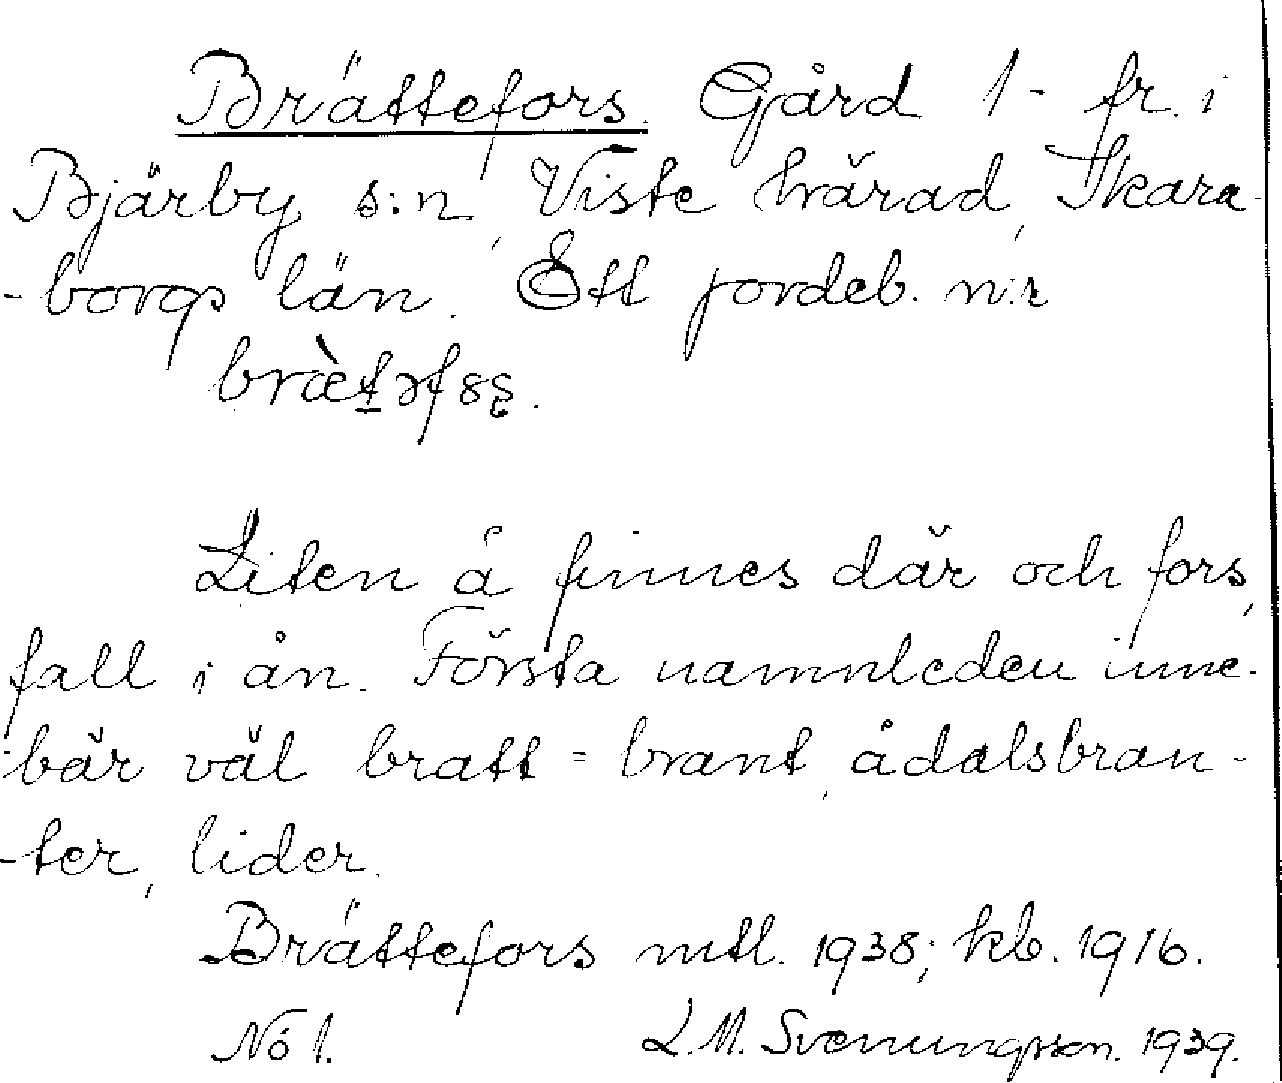 Brättefors. Gård 1 - fr. i
Bjärby s:n, Viste härad, Skara-
-borgs län. Ett jordeb. n:r
Liten å finnes där och fors,
fall i ån. Första namnleden inne-
-bär väl bratt = brant, ådalsbran-
-ter, lider.
Brättefors mtl. 1938; kb. 1916.
No 1. L.M. Svenungsson. 1939.